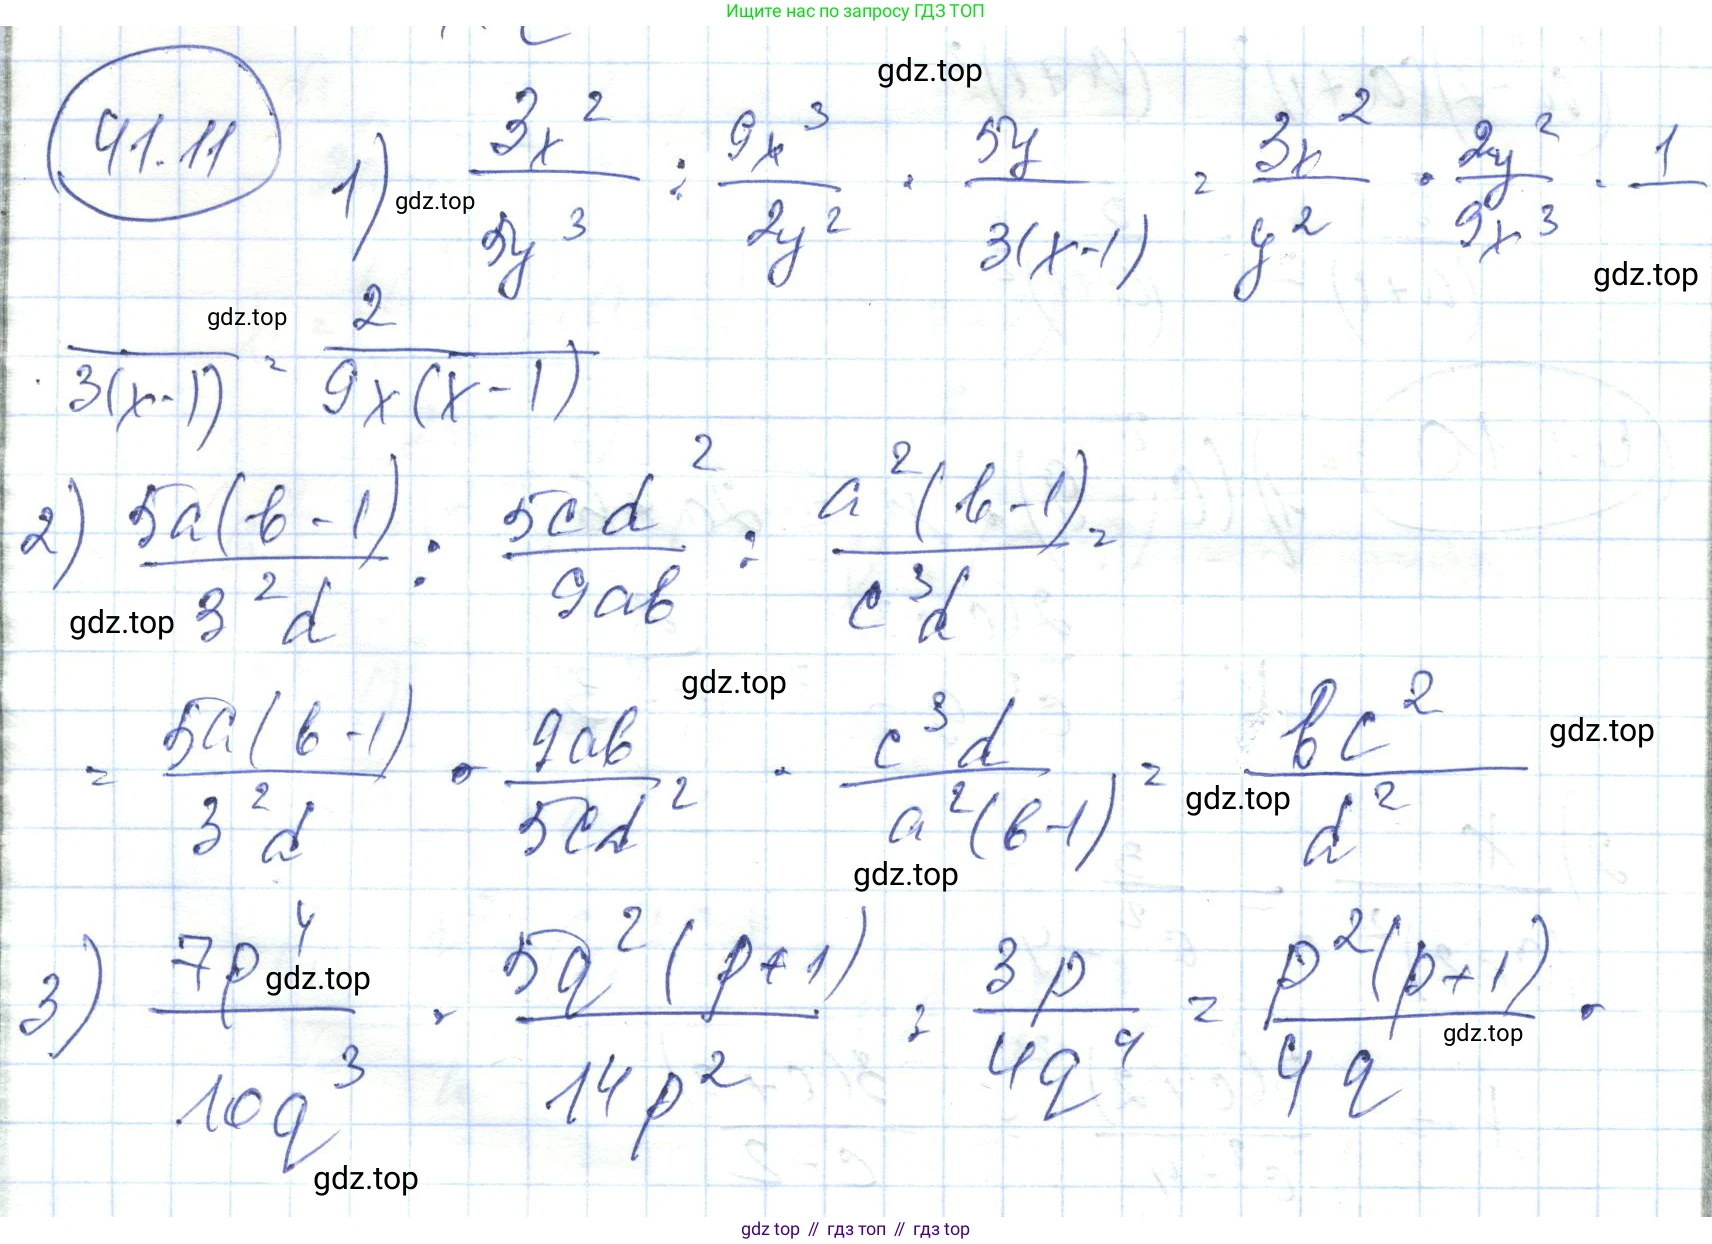 Ищите нас по запросу ГДЗ ТОП
gdz.top
41.11 1) 3x²/5y³ : 9x³/2y² · 5y/3(x-1) = 3x²/y² · 2y²/9x³ · 1/
gdz.top
gdz.top
gdz.top
/3(x-1) = 2/9x(x-1)
2) 5a(b-1)/3²d : 5cd²/9ab : a²(b-1)/c³d =
gdz.top
gdz.top
gdz.top
= 5a(b-1)/3²d · 9ab/5cd² · c³d/a²(b-1) = bc²/d²
gdz.top
gdz.top
3) 7p⁴/10q³ · 5q²(p+1)/14p² : 3p/4q⁴ = p²(p+1)/4q ·
gdz.top
gdz.top
gdz.top
gdz top // гдз топ // гдз top